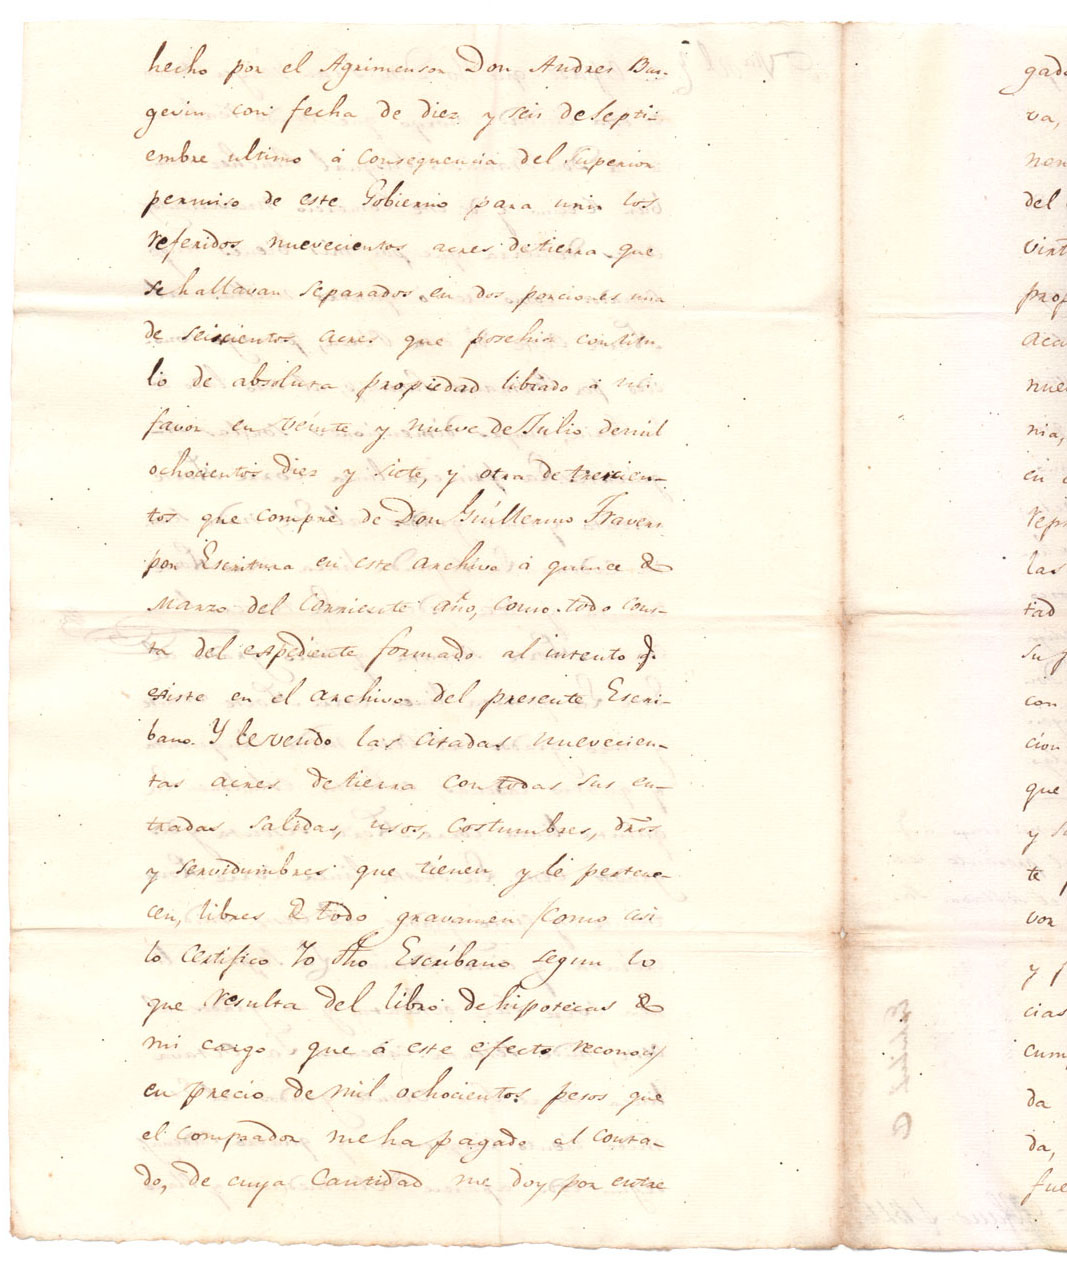 hecho por el Agrimensor Don Andres Bur-
gevin con fecha de diez y seis de Septi-
embre ultimo á consequencia del Superior
permiso de este Gobierno para unir los
referidos nuevecientos acres de tierra que
se hallavan separados en dos porciones una
de seiscientos acres que posehia con titu
lo de absoluta propiedad librado á mi
favor en veinte y nueve de Julio de mil
ochocientos diez y siete, y otra de trescien-
tos que compré de Don Guillermo Travers
por Escritura en este archivo á quince de
Marzo del corriente año, como todo cons-
ta del espediente formado al intento q.
existe en el archivo del presente Escri-
bano. Y le vendo las citadas nuevecien-
tas acres de tierra con todas sus en-
tradas salidas, usos, costumbres, dros
y servidumbres que tienen y le pertene-
cen, libres de todo gravamen (como asi
lo certifico Yo dho Escribano segun lo
que resulta del libro de hipotecas de
mi cargo que á este efecto reconoci)
en precio de mil ochocientos pesos que
el comprador me ha pagado al conta-
do, de cuya cantidad me doy por entre
gad
va,
nen
del
vint
prop
acc
nue
nia,
en
rep
las
tad
su p
con
cion
que
y s
te p
vor
y p
cias
cum
da
da,
fue